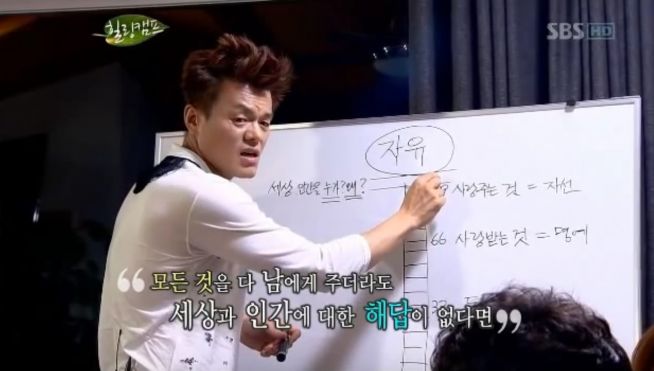 힐링캠프
SBS HD
자유
세상 인간을 누가? 왜?
99 사랑주는 것 = 자선
66 사랑받는 것 = 명예
33
“모든 것을 다 남에게 주더라도
세상과 인간에 대한 해답이 없다면”